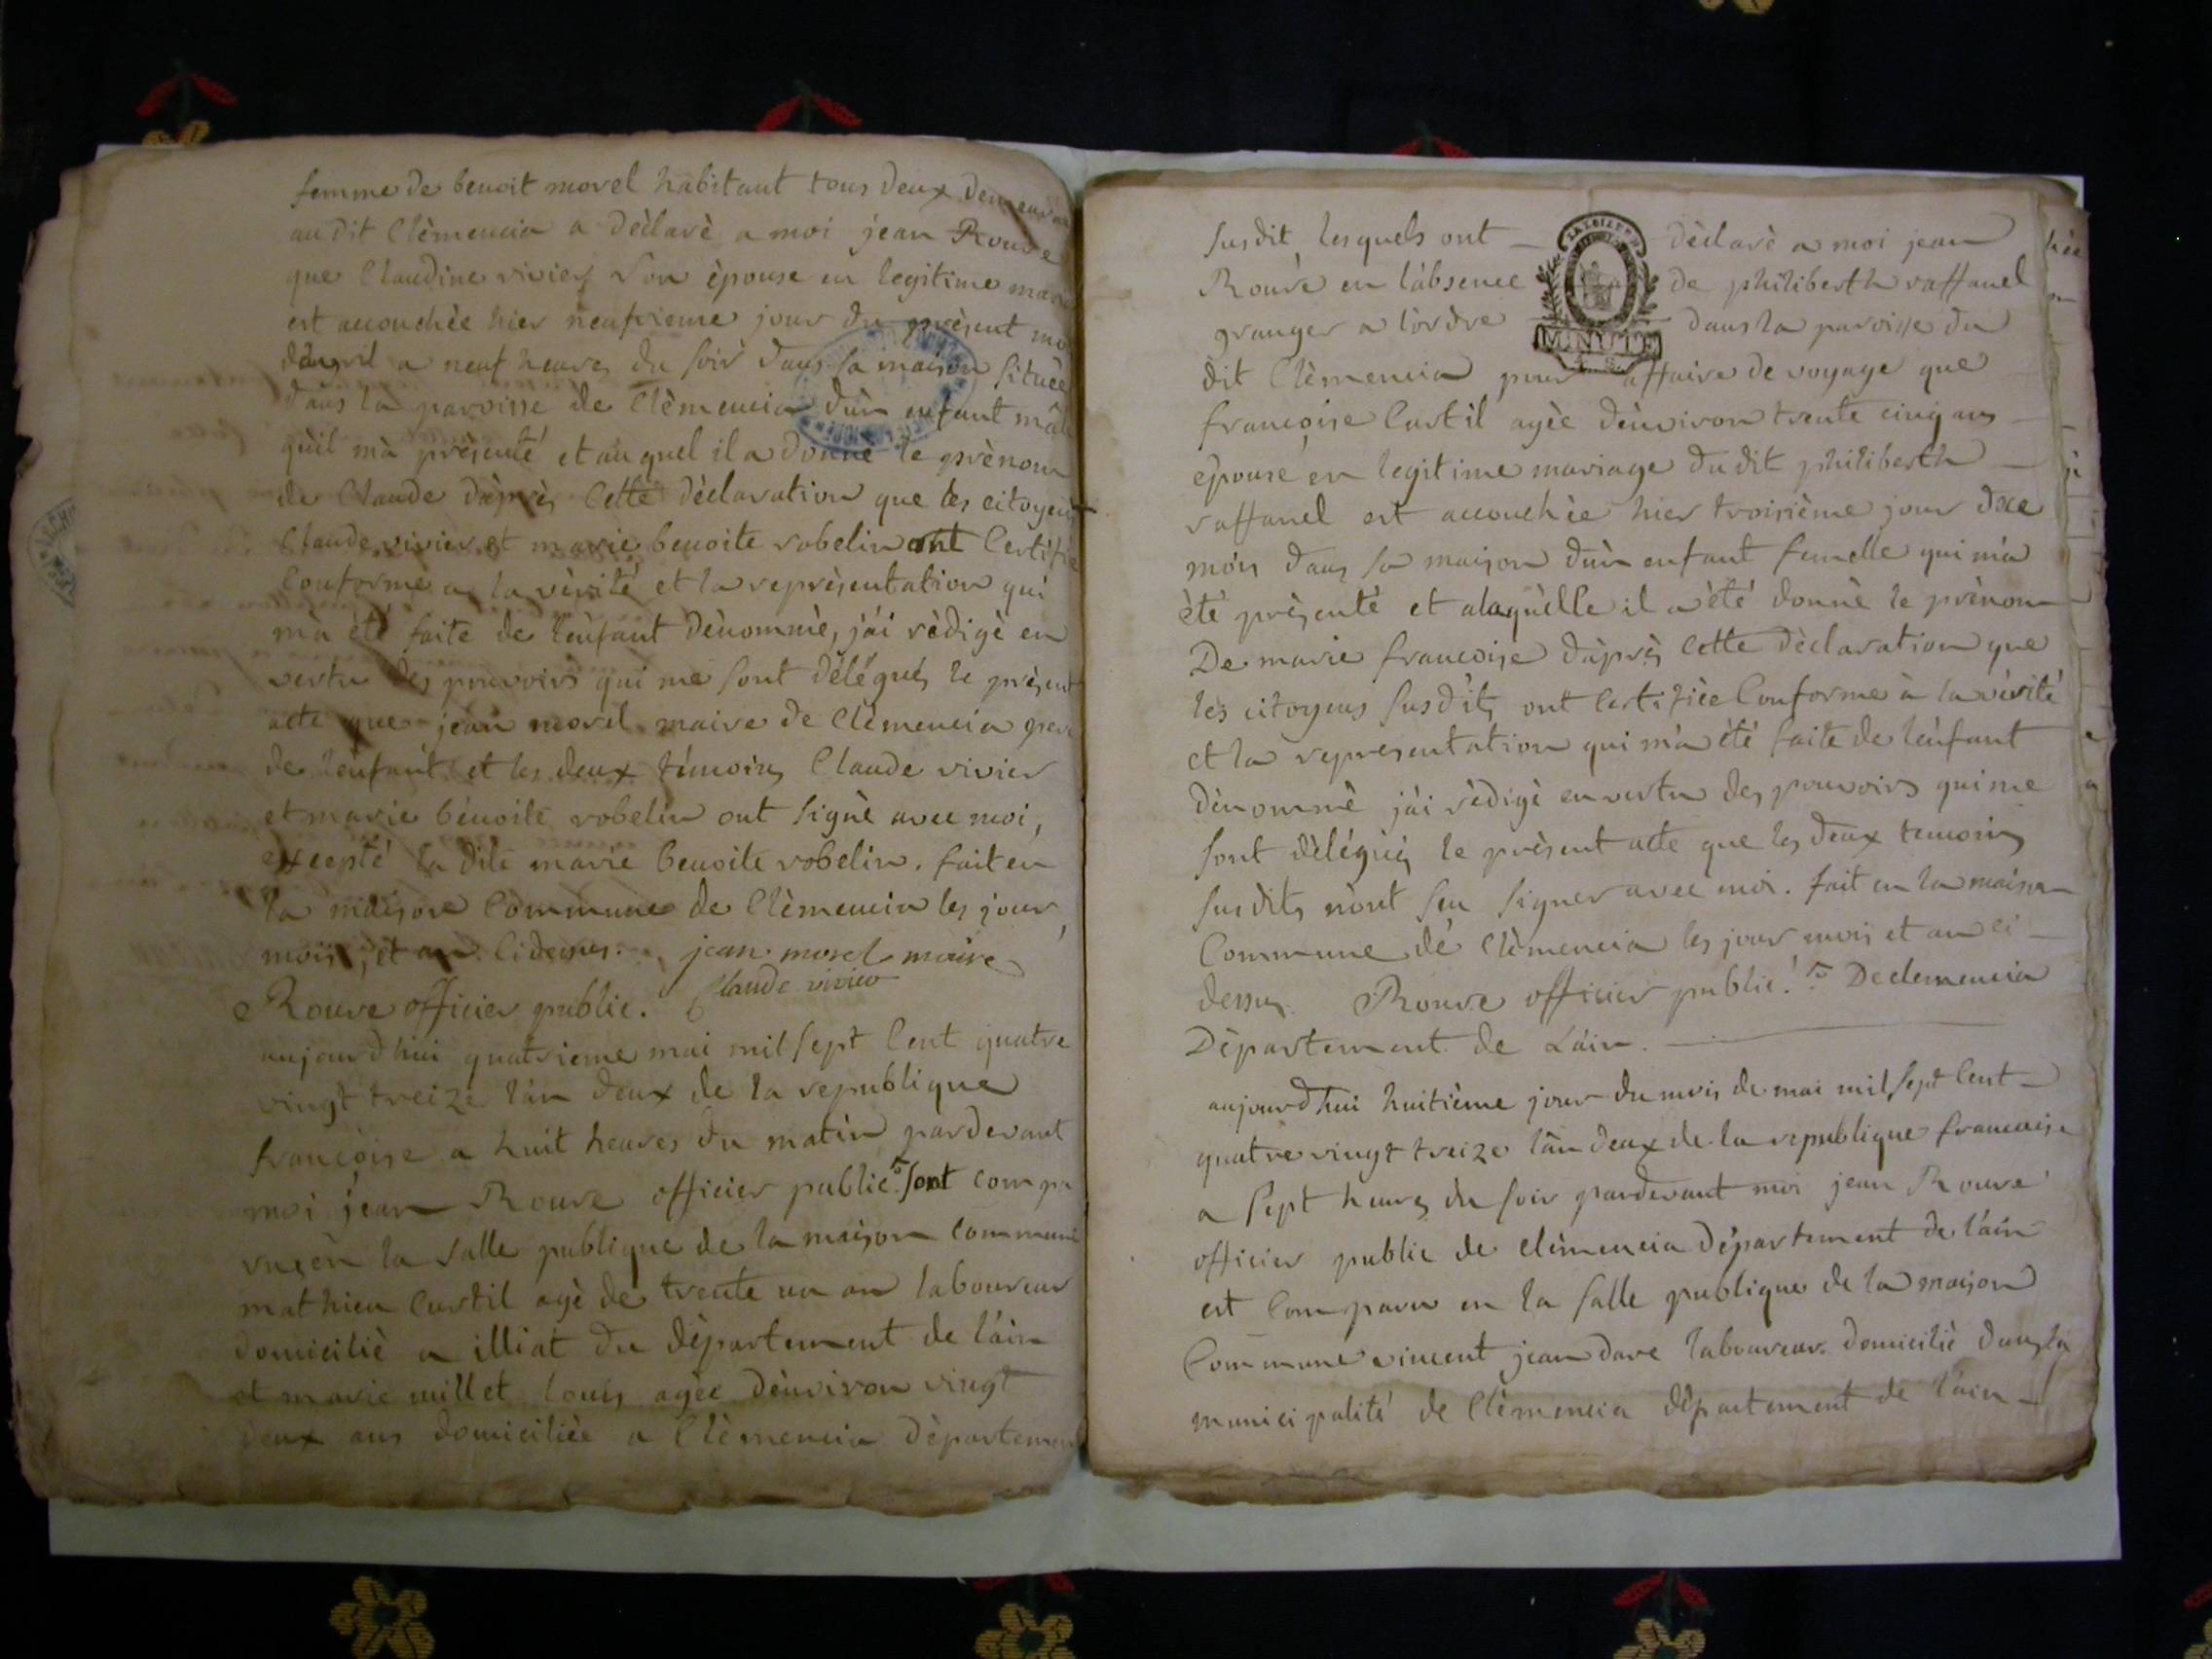 femme de benoit morel habitant tous deux demeurant
au dit Clèmencia a dèclarè a moi jean Rouve
que Claudine vivier son èpouse en legitime
est accouchèe hier neufvieme jour du prèsent
d'avril a neuf heures du soir dans sa maison situèe
dans la paroisse de Clèmencia d'ùn enfant mâle
qùil m'à prèsenté et au quel il a donnè le prènom
de Claude d'àprès cette dèclaration que les citoyens
Claude vivier et marie benoite robelin ont certifiè
conforme a la vèrité et la reprèsentation qui
m'à ètè faite de l'enfant dènommè, j'ài rèdigè en
vertu des pouvoirs qui me sont dèléguès le prèsent
acte que jean morel maire de Clèmencia
de l'enfant et les deux tèmoins Claude vivier
et marie bènoite robelin ont signè avec moi,
exceptè la dite marie benoite robelin. fait en
la maison commune de Clèmencia les jour,
mois, et an cidessus. jean morel maire
Rouve officier public. Claude vivier
aujourd'hui quatrieme mai mil sept cent quatre
vingt treize l'àn deux de la republique
françoise a huit heures du matin pardevant
moi jean Rouve officier public sont compa
rus en la salle publique de la maison commune
mathieu Curtil agè de trente un an laboureur
domiciliè a illiat du dèpartement de l'àin
et marie millet louis agèe d'ènviron vingt
deux ans domicilièe a Clèmencia dèpartement
susdit, lesquels ont dèclarè a moi jean
Rouve en l'àbsence de philiberth raffanel
granger a l'òrdre dans la paroisse du
dit Clèmencia pour affaire de voyage que
francoise Curtil agèe d'ènviron trente cinq ans
èpouse en legitime mariage du dit philiberth
raffanel est accouchèe hier troisième jour dxe
mois dans sa maison d'ùn enfant femelle qui m'à
ètè prèsentè et alaquèlle il a ètè donnè le prènom
De marie francoise d'àprès cette dèclaration que
les citoyens susdits ont certifièe conforme à la vèrité
et la representation qui m'à ètè faite de l'enfant
dènommè j'ài rèdigè en vertu des pouvoirs qui me
sont dèléguès le prèsent acte que les deux temoins
susdits n'ont seu signer avec moi. fait en la maison
commune de Clèmencia les jour mois et an ci
dessus. Rouve officier public. De clemencia
Dèpartement de L'àin.
aujourd'hui huitième jour du mois de mai mil sept cent
quatre vingt treize l'àn deux de la republique francaise
a sept heures du soir pardevant moi jean Rouve
officier public de clèmencia dèpartement de l'àin
est comparu en la salle publique de la maison
commune vincent jeandare laboureur domiciliè dans la
municipalité de Clèmencia dèpartement de l'àin
MINUTE